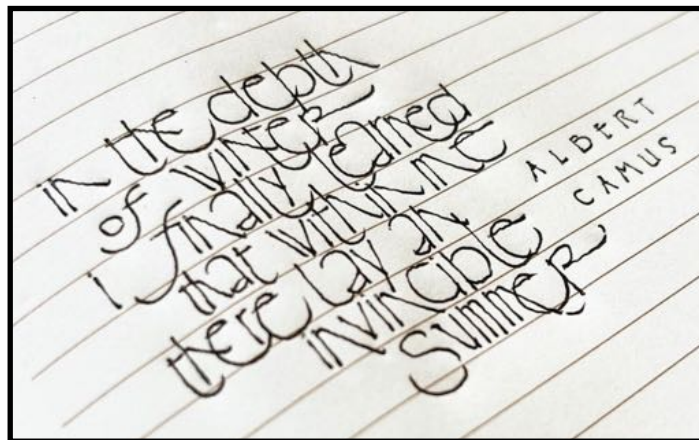 in the depth
of winter
i finally learned
that within me
there lay an
invincible
summer
ALBERT
CAMUS